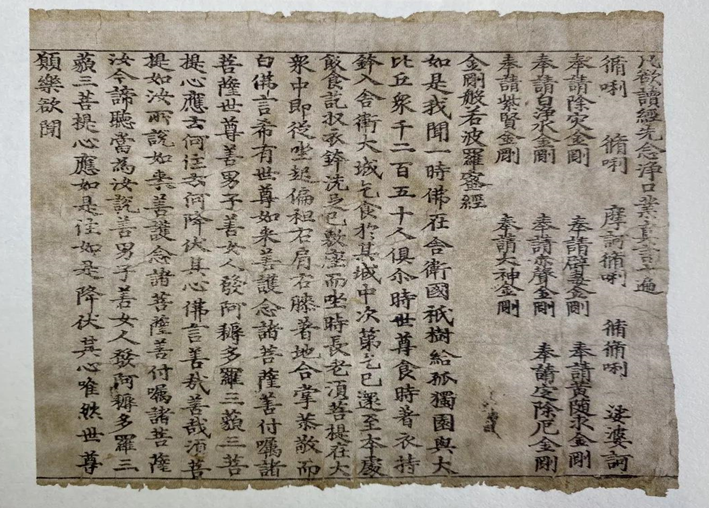 凡欲讀經先念淨口業真言一遍
脩唎 脩唎 摩訶脩唎 脩脩唎 娑婆訶
奉請除灾金剛 奉請辟毒金剛 奉請黃隨求金剛
奉請白淨水金剛 奉請赤聲金剛 奉請定除厄金剛
奉請紫賢金剛 奉請大神金剛
金剛般若波羅蜜經
如是我聞一時佛在舍衛國祇樹給孤獨園與大
比丘衆千二百五十人俱尒時世尊食時著衣持
鉢入舍衛大城乞食於其城中次第乞已還至本處
飯食訖収衣鉢洗足已敷座而坐時長老湏菩提在大
衆中即從坐起偏袒右肩右膝著地合掌恭敬而
白佛言希有世尊如来善護念諸菩薩善付囑諸
菩薩世尊善男子善女人發阿耨多羅三藐三菩
提心應云何住云何降伏其心佛言善哉善哉湏菩
提如汝所說如来善護念諸菩薩善付囑諸菩薩
汝今諦聽當為汝說善男子善女人發阿耨多羅三
藐三菩提心應如是住如是降伏其心唯然世尊
願樂欲聞